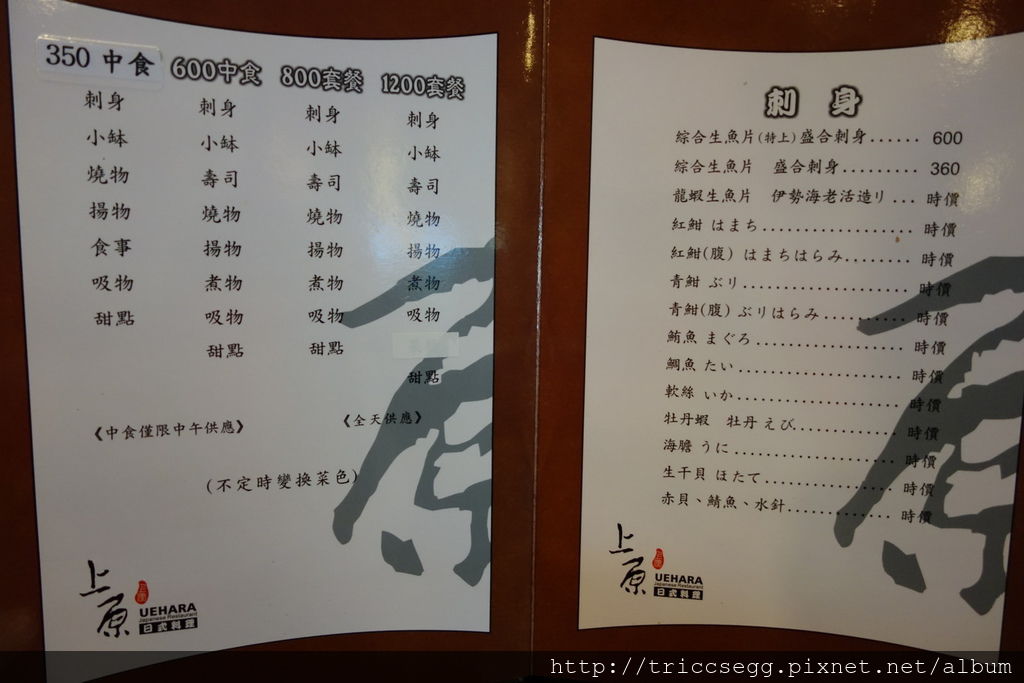 350 中食
刺身
小缽
燒物
揚物
食事
吸物
甜點
600中食
刺身
小缽
壽司
燒物
揚物
煮物
吸物
甜點
800套餐
刺身
小缽
壽司
燒物
揚物
煮物
吸物
甜點
1200套餐
刺身
小缽
壽司
燒物
揚物
煮物
吸物
甜點
《中食僅限中午供應》
《全天供應》
(不定時變換菜色)
上原
UEHARA
Japanese Restaurant
日式料理
刺 身
綜合生魚片(特上)盛合刺身...... 600
綜合生魚片 盛合刺身......... 360
龍蝦生魚片 伊勢海老活造り... 時價
紅魽 はまち................... 時價
紅魽(腹) はまちはらみ........ 時價
青魽 ぶり..................... 時價
青魽(腹) ぶりはらみ........... 時價
鮪魚 まぐろ................... 時價
鯛魚 たい..................... 時價
軟絲 いか..................... 時價
牡丹蝦 牡丹えび............. 時價
海膽 うに..................... 時價
生干貝 ほたて................ 時價
赤貝、鯖魚、水針............. 時價
上原
UEHARA
Japanese Restaurant
日式料理
http://triccsegg.pixnet.net/album